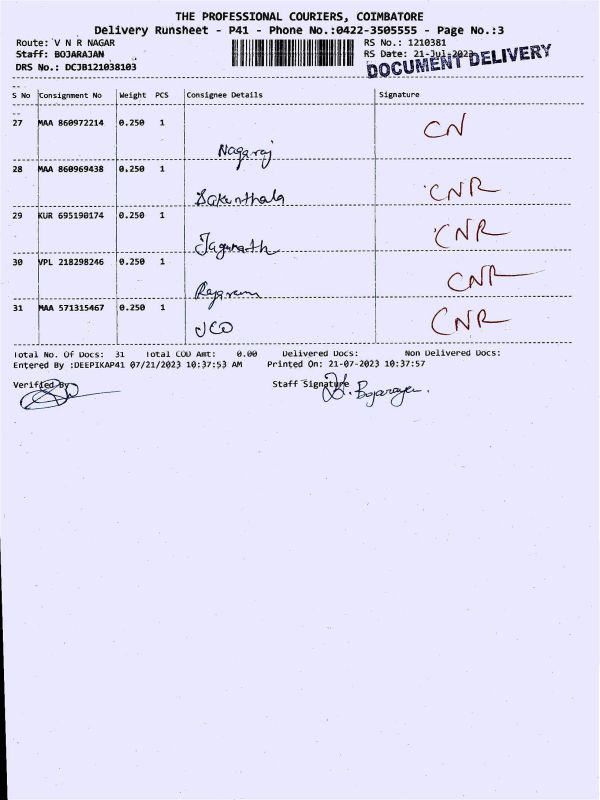 THE PROFESSIONAL COURIERS, COIMBATORE
Delivery Runsheet - P41 - Phone No.:0422-3505555 - Page No.:3
Route: V N R NAGAR RS No.: 1210381
Staff: BOJARAJAN RS Date: 21-Jul-2023
DRS No.: DCJB121038103 DOCUMENT DELIVERY
S No Consignment No Weight PCS Consignee Details Signature
27 MAA 860972214 0.250 1 CN
Nagaraj
28 MAA 860969438 0.250 1
Sakunthala CNR
29 KUR 695190174 0.250 1 CNR
Jagunath
30 VPL 218298246 0.250 1 CNR
Rajaram
31 MAA 571315467 0.250 1 CNR
UCO
Total No. Of Docs: 31 Total COD Amt: 0.00 Delivered Docs: Non Delivered Docs:
Entered By :DEEPIKAP41 07/21/2023 10:37:53 AM Printed On: 21-07-2023 10:37:57
Verified By Staff Signature